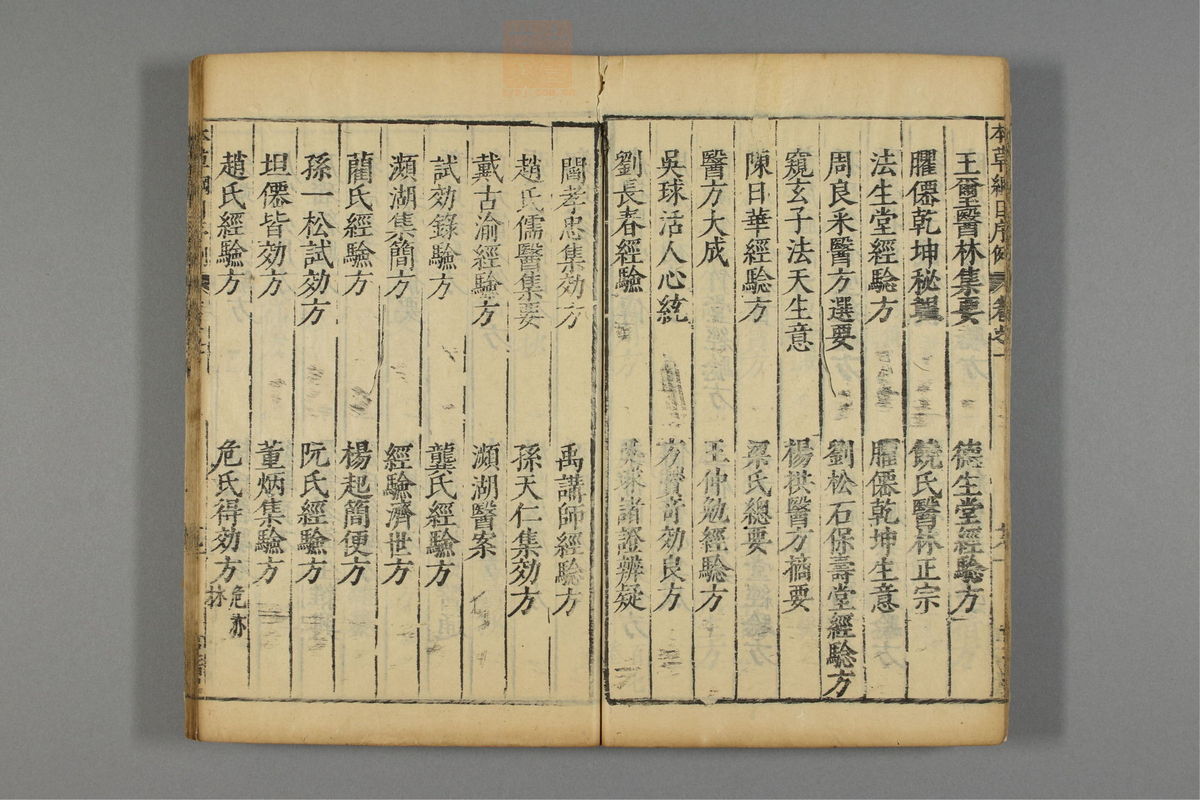 本草綱目序例 卷之一
王璽醫林集要
德生堂經驗方
臞僊乾坤秘韞
饒氏醫林正宗
法生堂經驗方
臞僊乾坤生意
周良采醫方選要
劉松石保壽堂經驗方
窺玄子法天生意
楊拱醫方摘要
陳日華經驗方
梁氏總要
醫方大成
王仲勉經驗方
吳球活人心統
方賢奇効良方
劉長春經驗
吳球諸證辨疑
閻孝忠集効方
禹講師經驗方
趙氏儒醫集要
孫天仁集効方
戴古渝經驗方
瀕湖醫案
試効錄驗方
龔氏經驗方
瀕湖集簡方
經驗濟世方
藺氏經驗方
楊起簡便方
孫一松試効方
阮氏經驗方
坦僊皆効方
董炳集驗方
趙氏經驗方
危氏得効方 危亦林
本草綱目序例